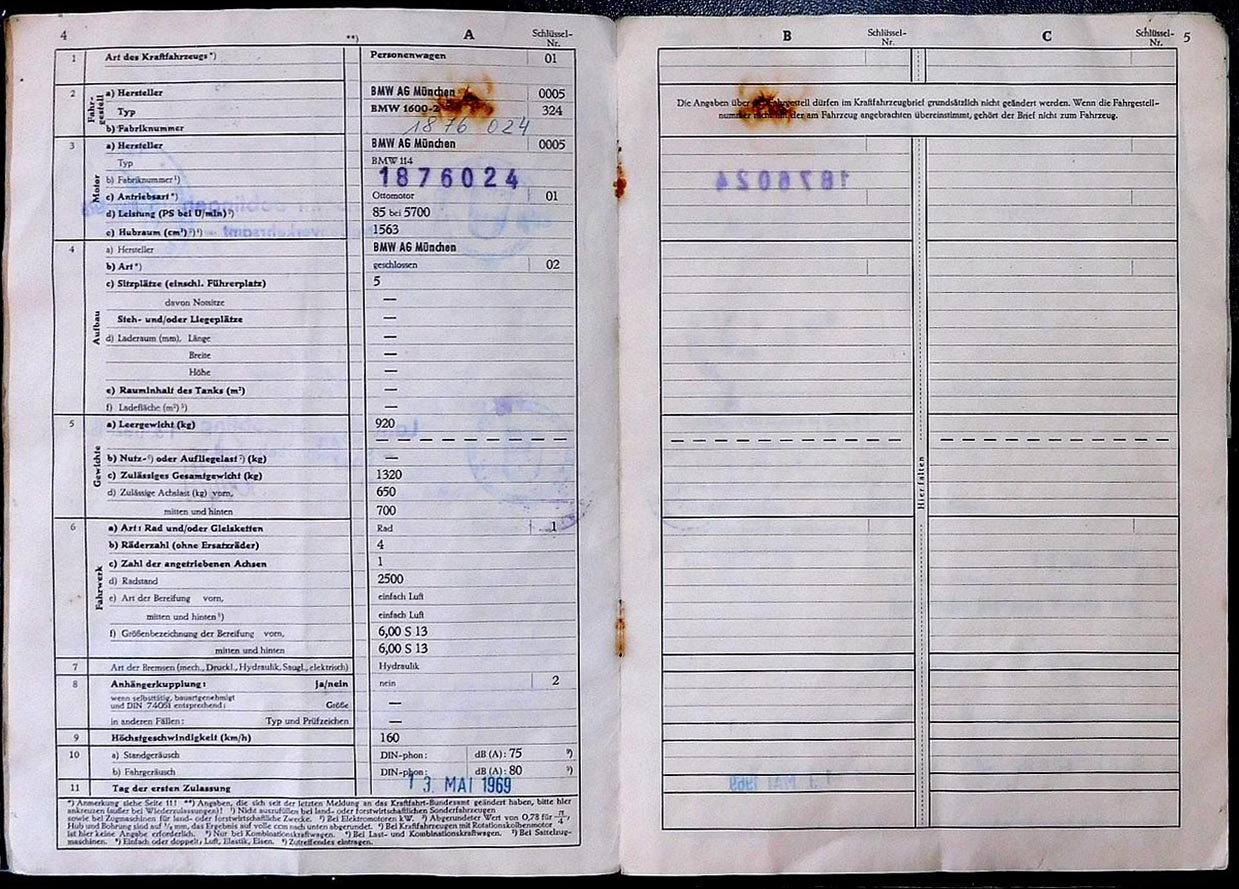 4 **) A Schlüssel-Nr.
1 Art des Kraftfahrzeugs*) Personenwagen 01
2 Fahrgestell a) Hersteller BMW AG München 0005
Typ BMW 1600-2 324
b) Fabriknummer 1876 024
3 Motor a) Hersteller BMW AG München 0005
Typ BMW 114
b) Fabriknummer¹) 1876024
c) Antriebsart*) Ottomotor 01
d) Leistung (PS bei U/min)²) 85 bei 5700
e) Hubraum (cm³)³)⁴) 1563
4 Aufbau a) Hersteller BMW AG München
b) Art*) geschlossen 02
c) Sitzplätze (einschl. Führerplatz) 5
davon Notsitze —
Steh- und/oder Liegeplätze —
d) Laderaum (mm), Länge —
Breite —
Höhe —
e) Rauminhalt des Tanks (m³) —
f) Ladefläche (m²)⁵) —
5 Gewichte a) Leergewicht (kg) 920
b) Nutz-⁶) oder Aufliegelast⁷) (kg) —
c) Zulässiges Gesamtgewicht (kg) 1320
d) Zulässige Achslast (kg) vorn, 650
mitten und hinten 700
6 Fahrwerk a) Art: Rad und/oder Gleisketten Rad 1
b) Räderzahl (ohne Ersatzräder) 4
c) Zahl der angetriebenen Achsen 1
d) Radstand 2500
e) Art der Bereifung vorn, einfach Luft
mitten und hinten⁸) einfach Luft
f) Größenbezeichnung der Bereifung vorn, 6,00 S 13
mitten und hinten 6,00 S 13
7 Art der Bremsen (mech., Druckl., Hydraulik, Saugl., elektrisch) Hydraulik
8 Anhängerkupplung: Ja/nein nein 2
wenn selbsttätig, bauartgenehmigt
und DIN 74051 entsprechend: Größe —
in anderen Fällen: Typ und Prüfzeichen —
9 Höchstgeschwindigkeit (km/h) 160
10 a) Standgeräusch DIN-phon: dB (A): 75 ⁹)
b) Fahrgeräusch DIN-phon: dB (A): 80 ⁹)
11 Tag der ersten Zulassung 13. MAI 1969
*) Anmerkung siehe Seite 11! **) Angaben, die sich seit der letzten Meldung an das Kraftfahrt-Bundesamt geändert haben, bitte hier
ankreuzen (außer bei Wiederzulassungen)! ¹) Nicht auszufüllen bei land- oder forstwirtschaftlichen Sonderfahrzeugen
sowie bei Zugmaschinen für land- oder forstwirtschaftliche Zwecke. ²) Bei Elektromotoren kW. ³) Abgerundeter Wert von 0,78 für π/4,
Hub und Bohrung sind auf ½ mm, das Ergebnis auf volle ccm nach unten abgerundet. ⁴) Bei Kraftfahrzeugen mit Rotationskolbenmotor
ist hier keine Angabe erforderlich. ⁵) Nur bei Kombinationskraftwagen. ⁶) Bei Last- und Kombinationskraftwagen. ⁷) Bei Sattelzug-
maschinen. ⁸) Einfach oder doppelt; Luft, Elastik, Eisen. ⁹) Zutreffendes eintragen.
B Schlüssel-Nr. C Schlüssel-Nr. 5
Die Angaben über das Fahrgestell dürfen im Kraftfahrzeugbrief grundsätzlich nicht geändert werden. Wenn die Fahrgestell-
nummer nicht mit der am Fahrzeug angebrachten übereinstimmt, gehört der Brief nicht zum Fahrzeug.
Hier falten